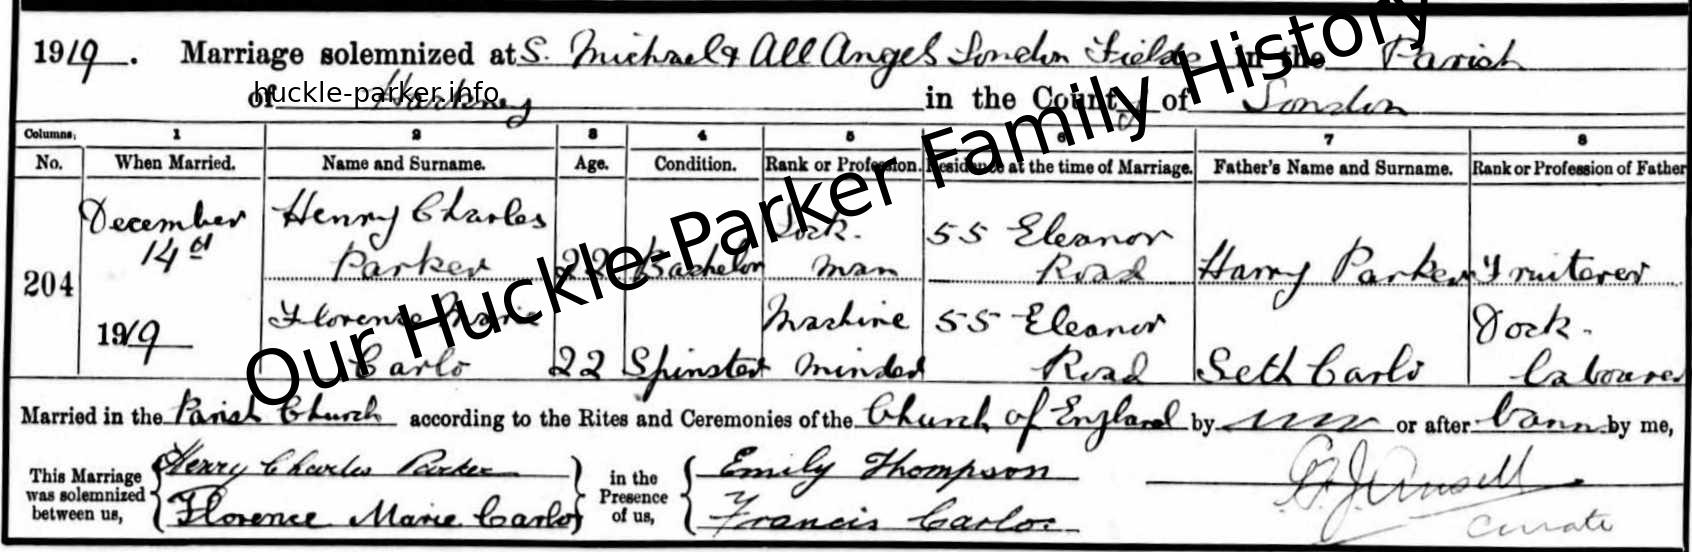 1919. Marriage solemnized at S. Michael & All Angels London Fields in the Parish
of Hackney in the County of London
huckle-parker.info
Our Huckle-Parker Family History
Columns: 1 2 3 4 5 6 7 8
No. When Married. Name and Surname. Age. Condition. Rank or Profession. Residence at the time of Marriage. Father's Name and Surname. Rank or Profession of Father
204 December 14th 1919
Henry Charles Parker 22 Bachelor Dock-man 55 Eleanor Road Harry Parker Fruiterer
Florence Marie Carlo 22 Spinster Machine minder 55 Eleanor Road Seth Carlo Dock-Labourer
Married in the Parish Church according to the Rites and Ceremonies of the Church of England by or after Banns by me,
This Marriage was solemnized between us, { Henry Charles Parker
Florence Marie Carlos } in the Presence of us, { Emily Thompson
Francis Carlos
Curate